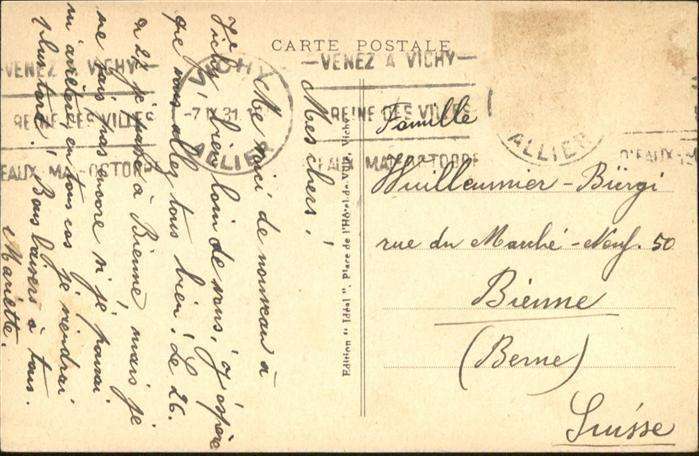 CARTE POSTALE
VENEZ A VICHY
REINE DES VILLES
D'EAUX MAI-OCTOBRE
VICHY
-7 IX 31
ALLIER
VENEZ A VICHY
REINE DES VILLES
D'EAUX MAI-OCTOBRE
ALLIER
D'EAUX
Mes chers!
Me voici de nouveau à
Vichy, bien loin de vous, j'espère
que vous allez tous bien! Le 26.
u 27 je serai à Bienne, mais je
ne sais pas encore si je pourrai
m'arrêter, en tous cas je viendrai
plus tard! Bons baisers à tous.
Mariette.
Edition "Idéal", Place de l'Hôtel de Ville, Vichy
Famille
Vuilleumier-Bürgi
rue du Marché-Neuf. 50
Bienne
(Berne)
Suisse